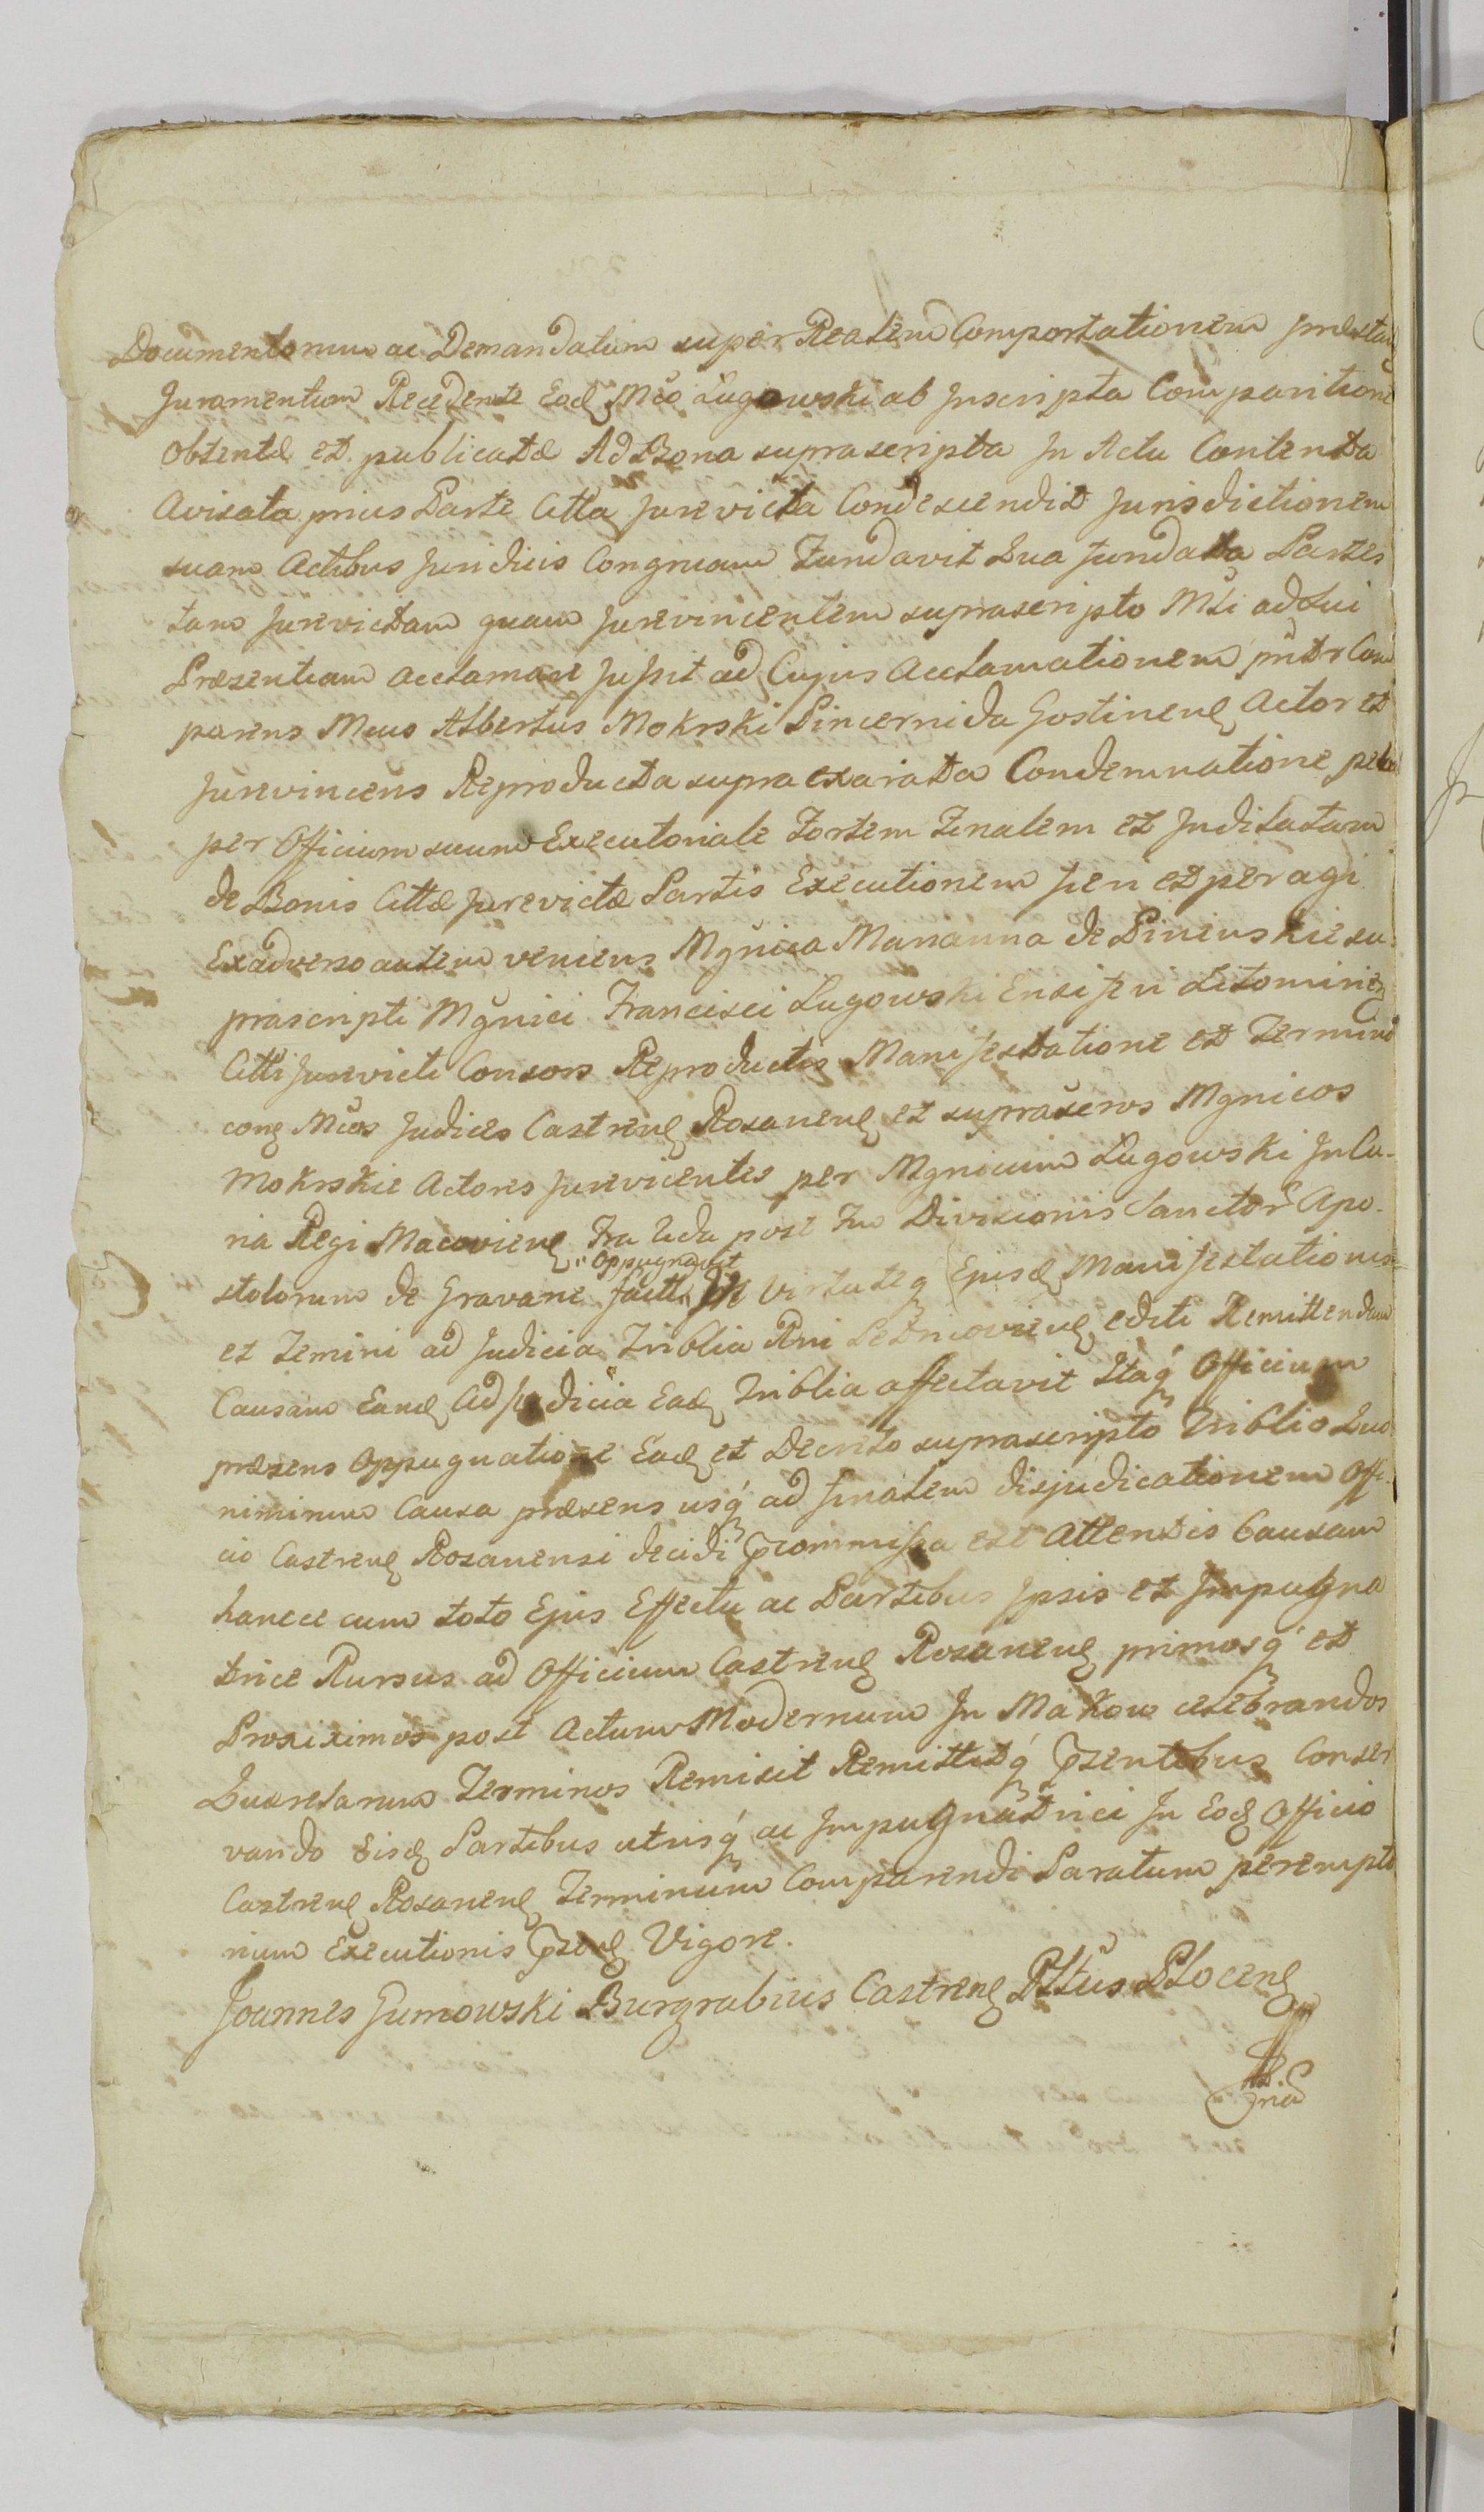 Documentorum ac Demandatum super Realem Comportationem præstan
Juramentum Recedente Eodꝫ Mco Lugowski ab Inscripta Comparitione
obtentæ et publicatæ Ad Bona suprascripta In Actu Contenta
Avisata prius Parte Citta Jurevicta Condescendit Jurisdictionem
suam Actibus Juridicis Congruam Fundavit Qua fundata Partes
tam Jurevictam quam Jurevincentem suprascripto Mli ad Sui
Præsentiam acclamare Jussit ad Cujus Acclamationem Com
parens Mcus Albertus Mokrski Pincernida Gostinenꝫ Actor et
Jurevincens Reproducta supra exarata Condemnatione
per Officium suum Executoriale Fortem Finalem et Inditatam
de Bonis Cittæ Jurevictæ Partis Executionem fieri et peragi
Exadverso autem veniens Mgnica Marianna de Pinenskie su-
prascripti Mgnici Francisci Lugowski Ensiferi
Citti Jurevicti Consors Reproductis Manifestatione et Termino
conꝫ Mcos Judices Castrenꝫ Rosanenꝫ et suprascros Mgnicos
Mokrskie Actores Jurevicentes per Mgnicum Lugowski In Cu-
ria Regi Macovienꝫ Fra 2da post Fm Divisionis Sanctor Apo-
stolorum de Gravane factt oppugnavit virtuteq́ Ejusdꝫ Manifestationis
et Temini ad Judicia Triblia Rni editi Remittendam
Causam Eandꝫ Ad Judicia Eadꝫ Triblia affectavit Itaq́ Officium
præsens Oppugnatione Eadꝫ et Decreto suprascripto Triblio Quo
nimirum Causa præsens usq́ ad finalem disjudicationem Offi-
cio Castrenꝫ Rosanensi decidi commissa est Attentis Causam
hancce cum toto Ejus Effectu ac Partibus Ipsis et Impugna
trice Rursus ad Officium Castrenꝫ Rosanenꝫ primosq́ et
Proxiximos post Actum Modernum In Makow celebrandos
Querelarum Terminos Remisit Remittitq́ pꝛsentibus Conser
vando Eisdꝫ Partibus utrisq́ ac Impugnatrici In Eodꝫ Officio
Castrenꝫ Rosanenꝫ Terminum Comparendi Paratum perempto
rium Executionis pꝛsenꝫ Vigore.
Joannes Gumowski Burgrabius Castrenꝫ Pltus Plocenꝫ